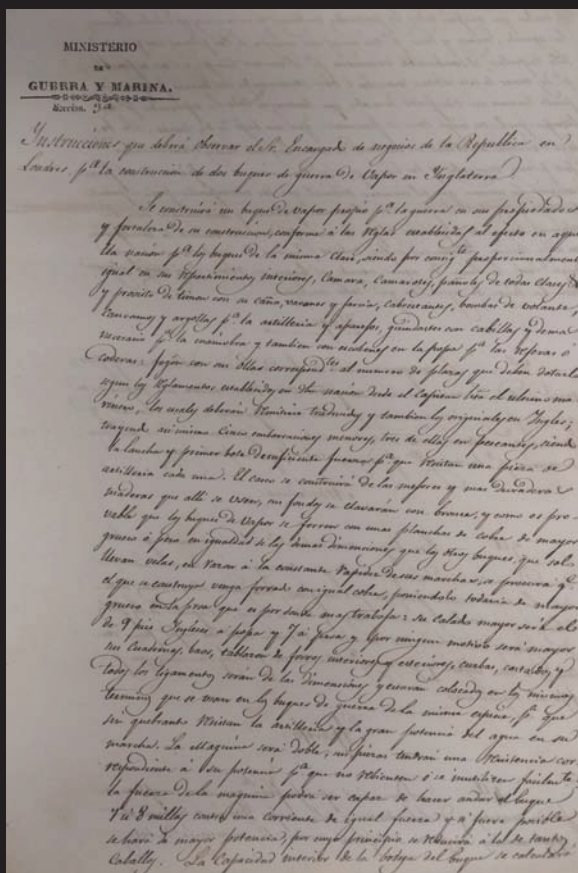 MINISTERIO
DE
GUERRA Y MARINA.
Sección
Instrucciones que deberá observar el Sr. Encargado de negocios de la Republica en
Londres pa. la construccion de dos buques de guerra de Vapor en Inglaterra
Se construirá un buque de vapor propio pa. la guerra en sus propiedades
y fortaleza de su construccion, conforme á las reglas establecidas al efecto en aque
lla nacion pa. los buques de la misma clase, siendo por consigte. proporcionalmente
igual en sus repartimientos interiores, Camara, Camarotes, pañoles de todas clases
y provisto de timon con su caña, y cabrestantes, bombas de volante,
cancamos y argollas pa. la artilleria y aparejos, guindastes con cabillas y demas
necesario pa. la maniobra y tambien con escobenes en la popa pa. las ó
coderas: fogon con sus ollas correspondtes. al numero de plazas que deben dotarle
segun los reglamentos establecidos en dha nacion desde el Capitan hta el ultimo ma-
rinero, los cuales deberán remitirse traducidos y tambien los originales en Ingles;
trayendo asi mismo Cinco embarcaciones menores, tres de ellas en pescantes, siendo
la lancha y primer bote de suficiente fuerza pa. que resistan una pieza de
artilleria cada una. El casco se construirá de las mejores y mas duraderas
maderas que alli se usen, sus fondos se clavarán con bronce, y como es pro-
bable que los buques de Vapor se forren con unas planchas de cobre de mayor
grueso á proa en igualdad de las demas dimensiones que los otros buques que solo
llevan velas, en razon á la constante rapidez de sus marchas, se procurará qe.
el que se construya venga forrado con igual cobre, poniendolo todavia de mayor
grueso en la proa que es por donde mas trabaja: su calado mayor será el
de 9 pies Ingleses á popa y 7 á proa y por ningun motivo será mayor
sus Cuadernas, baos, tablazon de forros interiores y exteriores, curbas, costados, y
todos los ligamentos serán de las dimensiones y estarán colocados en los mismos
terminos que se usan en los buques de guerra de la misma especie, pa. que
sin quebranto resistan la artilleria y la gran potencia del agua en su
marcha. La Maquina será doble; sus piezas tendrán una resistencia cor-
respondiente á su potencia pa. que no rebienten ó se inutilicen facilmente;
la fuerza de la maquina podrá ser capaz de hacer andar el buque
7 ú 8 millas contra una corriente de igual fuerza y si fuere posible
se hará de mayor potencia, por cuyo principio se reducirá á la de tantos
Caballos. La Capacidad interior de la bodega del buque se calculará